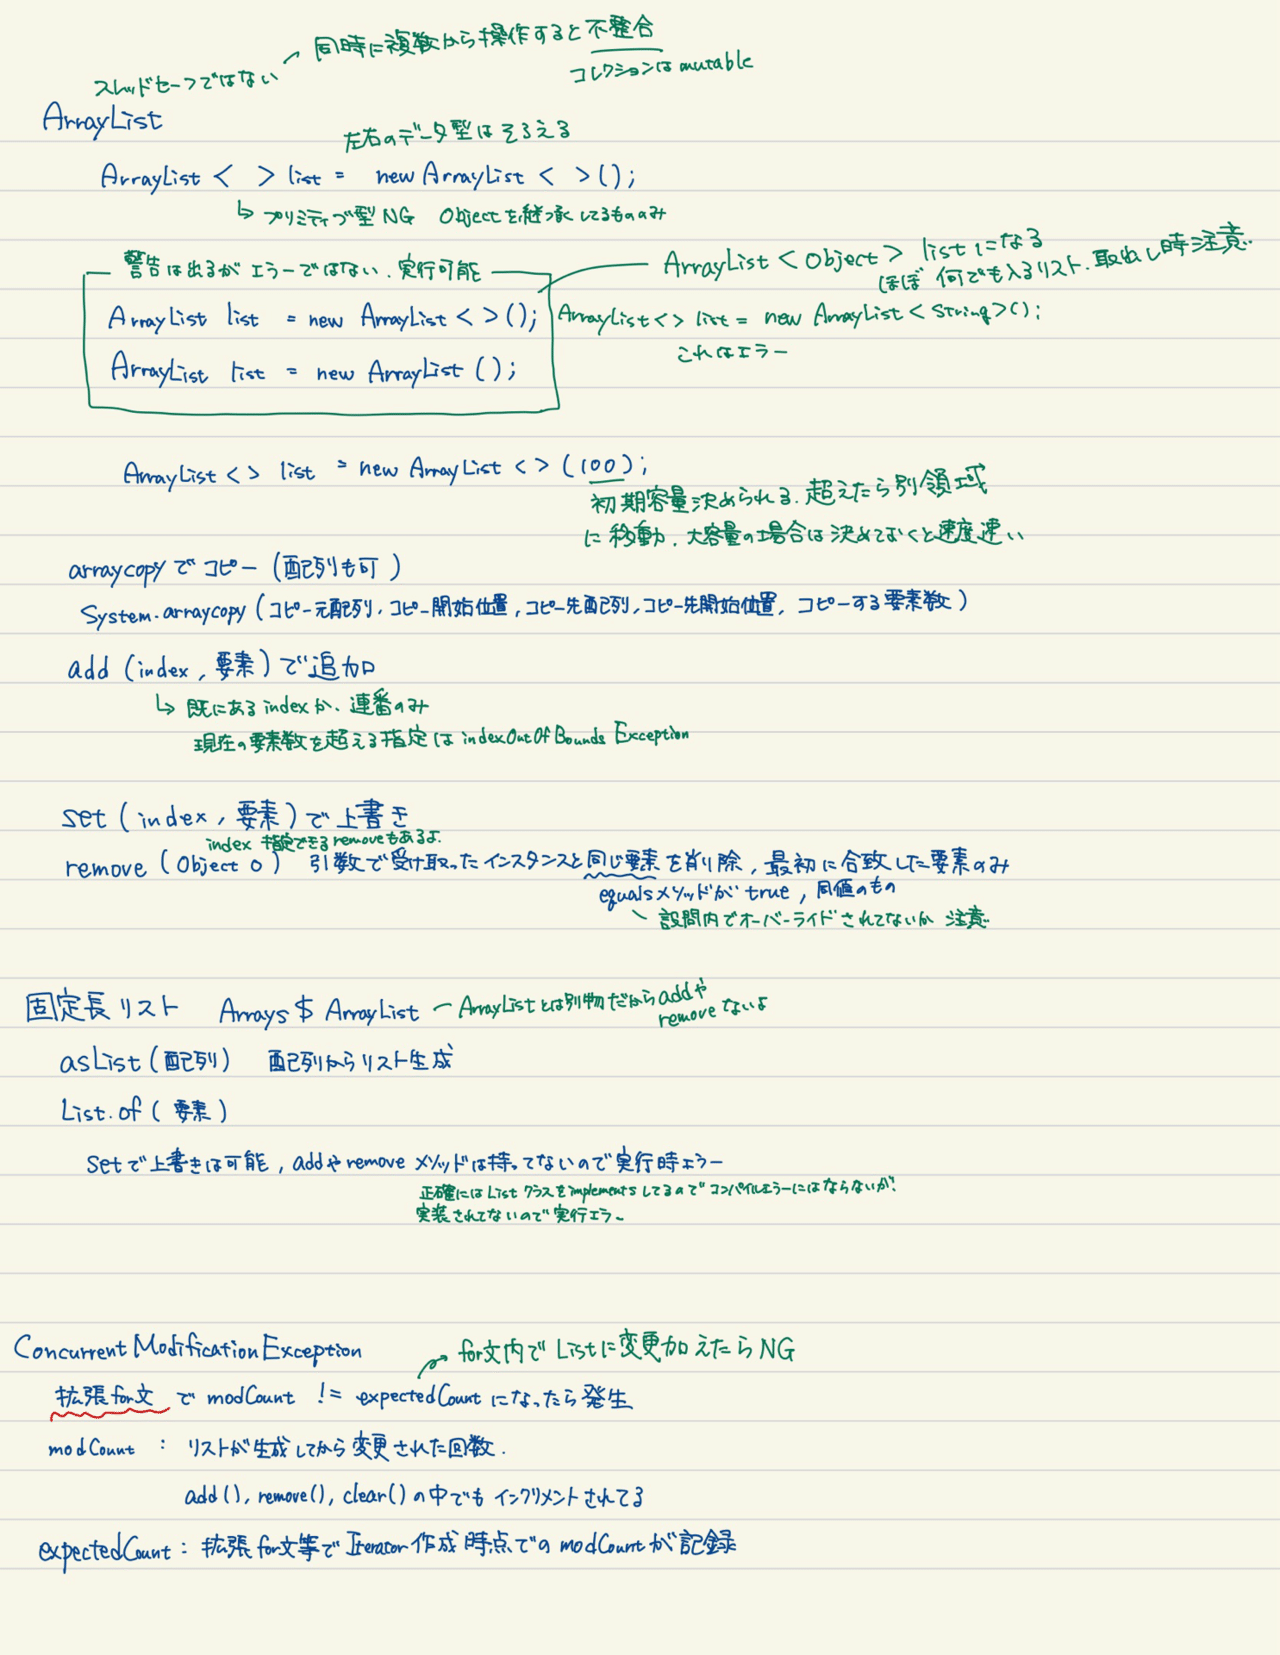 同時に複数から操作すると不整合
コレクションはmutable
スレッドセーフではない
ArrayList
左右のデータ型はそろえる
ArrayList < > list = new ArrayList < >();
プリミティブ型NG Objectを継承してるもののみ
警告は出るがエラーではない、実行可能
ArrayList list = new ArrayList < >();
ArrayList list = new ArrayList ();
ArrayList < Object > listになる
ほぼ何でも入るリスト、取出し時注意
ArrayList < > list = new ArrayList < String >();
これはエラー
ArrayList < > list = new ArrayList < > (100);
初期容量決められる、超えたら別領域
に移動、大容量の場合は決めておくと速度速い
arraycopyでコピー(配列も可)
System.arraycopy (コピー元配列, コピー開始位置, コピー先配列, コピー先開始位置, コピーする要素数)
add (index, 要素)で追加
既にあるindexか、連番のみ
現在の要素数を超える指定はindexOutOfBounds Exception
set (index, 要素)で上書き
index 指定できるremoveもあるよ.
remove (Object o) 引数で受け取ったインスタンスと同じ要素を削除, 最初に合致した要素のみ
equalsメソッドがtrue, 同値のもの
設問内でオーバーライドされてないか 注意
固定長リスト Arrays $ ArrayList ー ArrayListとは別物だからaddや
removeないよ
asList(配列) 配列からリスト生成
List.of( 要素 )
setで上書きは可能, addやremoveメソッドは持ってないので実行時エラー
正確にはListクラスをimplementsしてるのでコンパイルエラーにはならないが、
実装されてないので実行エラー
ConcurrentModificationException
for文内でListに変更加えたらNG
拡張for文でmodCount != expectedCountになったら発生
modCount : リストが生成してから変更された回数.
add(), remove(), clear()の中でもインクリメントされてる
expectedCount : 拡張for文等でIterator作成時点でのmodCountが記録